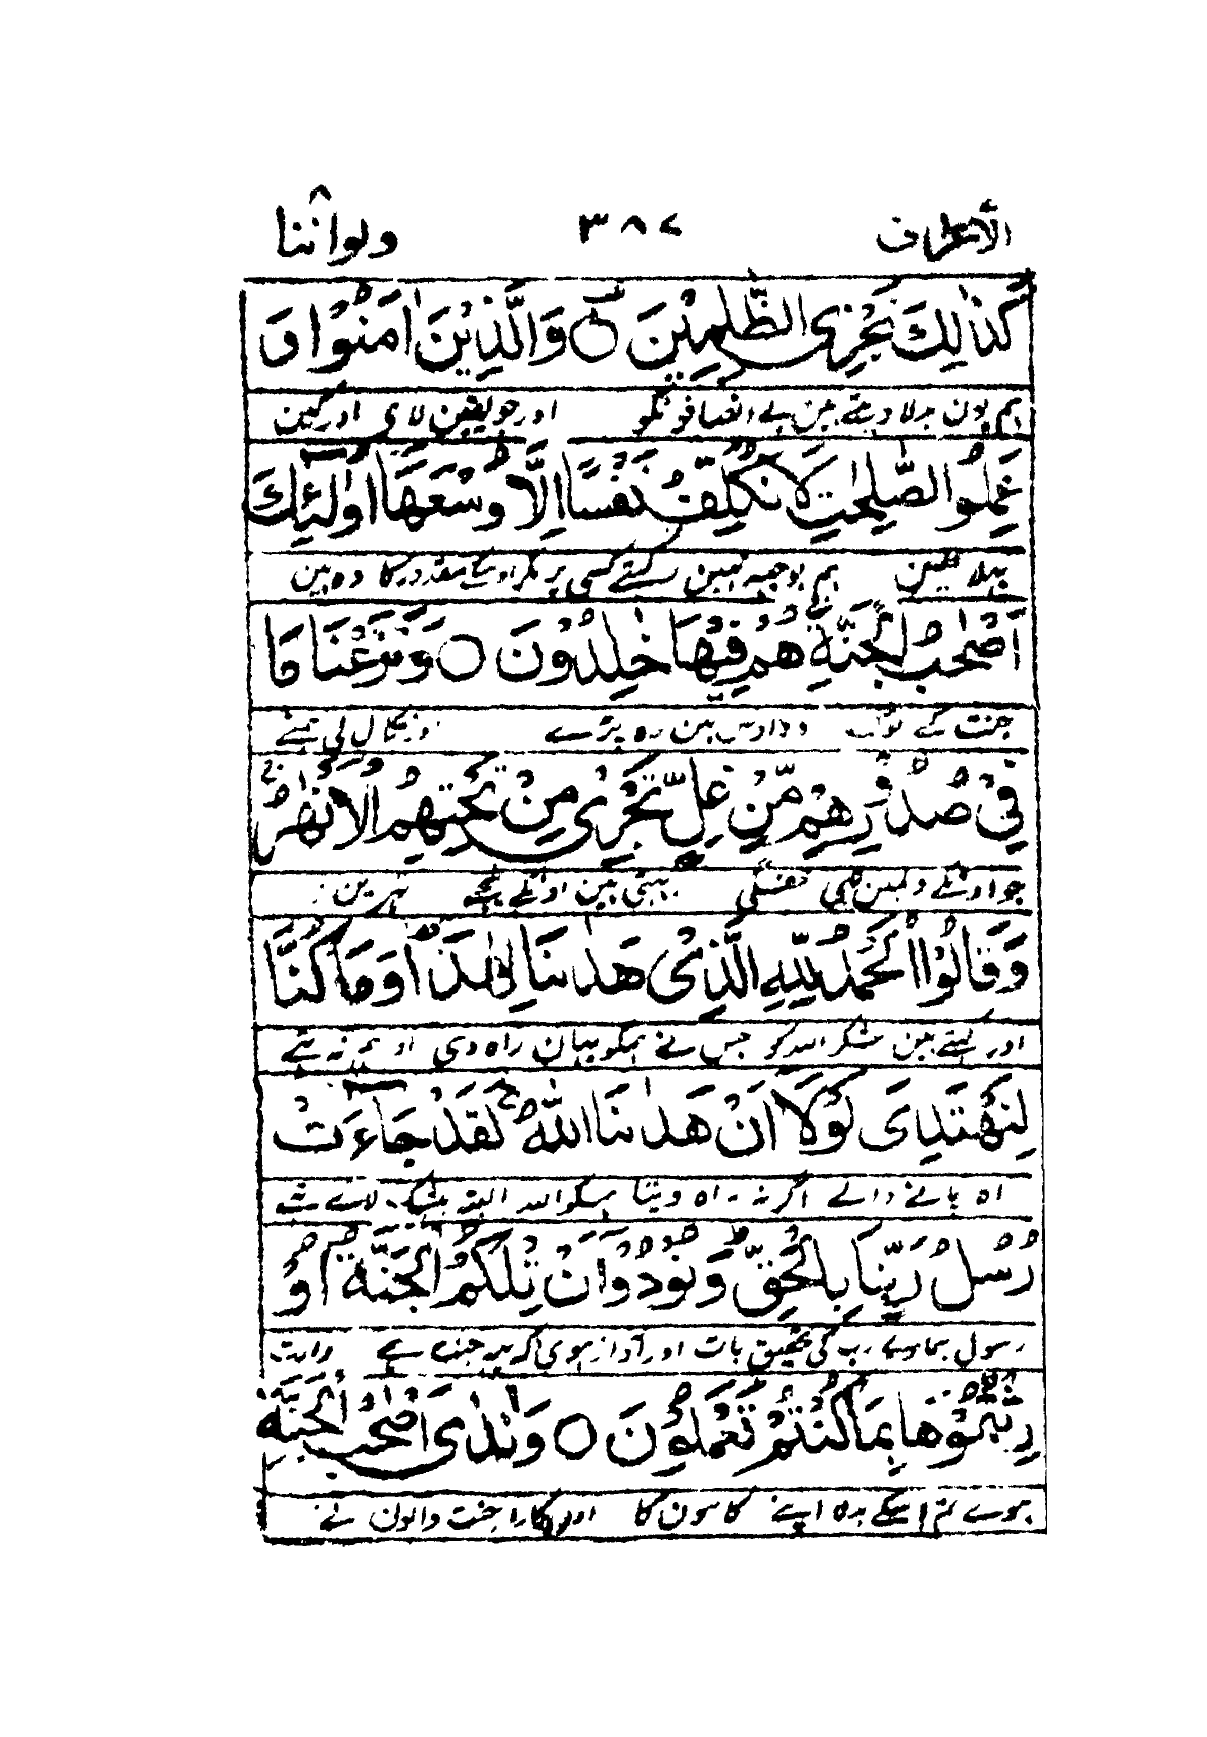 الأعراف ٣٨٧ ولواننا
كَذٰلِكَ نَجْزِى الظّٰلِمِيْنَ ○ وَالَّذِيْنَ اٰمَنُوْا وَ
ہم یون بدلا دیتے ہین بے انصافونکو اور جو یقین لائی اور کین
عَمِلُوا الصّٰلِحٰتِ لَا نُكَلِّفُ نَفْسًا اِلَّا وُسْعَهَا اُولٰٓئِكَ
بہلائین ہم بوجہہ نہین رکہتے کسی پر مگر اوسکے مقدور کا وہ ہین
اَصْحٰبُ الْجَنَّةِ هُمْ فِيْهَا خٰلِدُوْنَ ○ وَنَزَعْنَا مَا
جنت کے لوگ وہ اوس مین رہ پڑے اور نکال لی ہمنے
فِىْ صُدُوْرِهِمْ مِّنْ غِلٍّ تَجْرِىْ مِنْ تَحْتِهِمُ الْاَنْهٰرُ
جو اونکے دلمین تہی خفگی بہتی ہین اونکے نیچے نہرین
وَقَالُوا الْحَمْدُ لِلّٰهِ الَّذِىْ هَدٰىنَا لِهٰذَا وَمَا كُنَّا
اور کہتے ہین شکر اللہ کو جس نے ہمکو یہان راہ دی اور ہم نہ تہے
لِنَهْتَدِىَ لَوْلَا اَنْ هَدٰىنَا اللّٰهُ لَقَدْ جَآءَتْ
راہ پانے والے اگر نہ راہ دیتا ہمکو اللہ البتہ بیشک لائے تہے
رُسُلُ رَبِّنَا بِالْحَقِّ وَنُوْدُوْا اَنْ تِلْكُمُ الْجَنَّةُ اُوْ
رسول ہمارے رب کی تحقیق بات اور آواز ہوی کہ یہ جنت ہے وارث
رِثْتُمُوْهَا بِمَا كُنْتُمْ تَعْمَلُوْنَ ○ وَنَادٰى اَصْحٰبُ الْجَنَّةِ
ہوے تم اسکے بدلہ اپنے کامون کا اور پکارا جنت والون نے